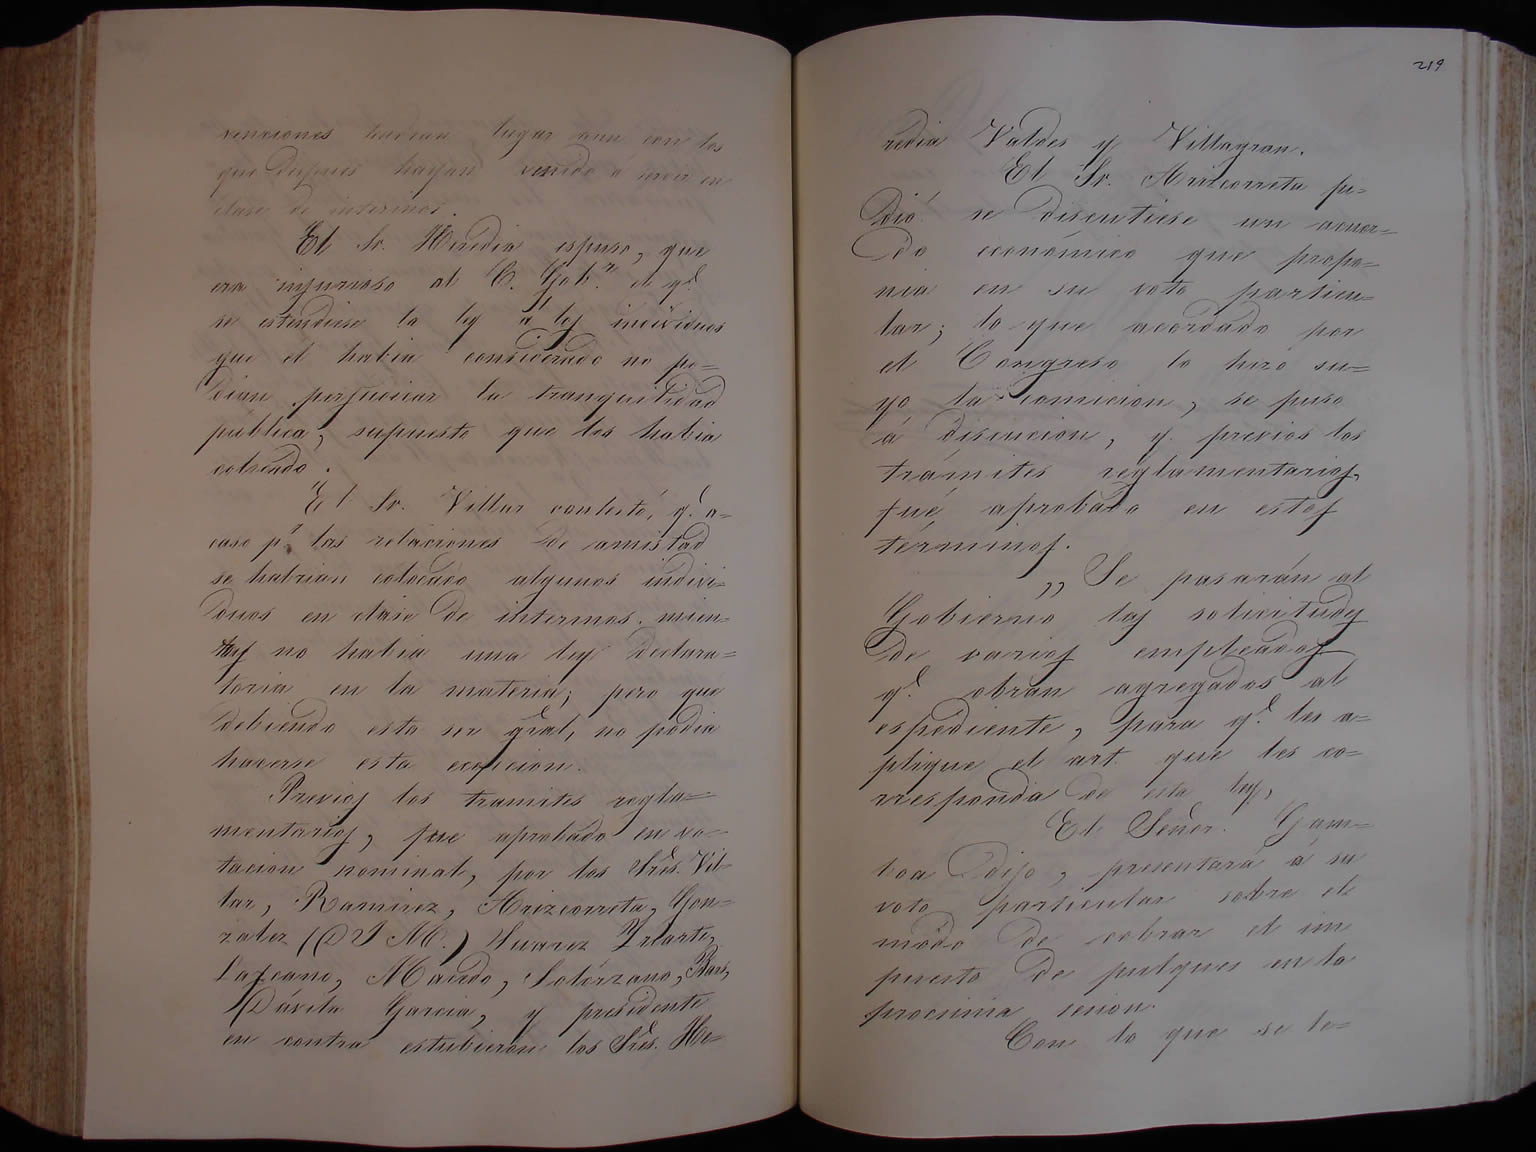 venciones habian lugar aun con los
que despues hayan venido á servir en
clase de interinos.
El Sr. Heredia espuso, que
era injurioso al E. Gobr. el q.e
se estendiese la ley á los individuos
que el habia considerado no po=
dian perjudicar la tranquilidad
publica, supuesto que los habia
colocado.
El Sr. Villar contestó, q.e a=
caso p.r las relaciones de amistad
se habrian colocado algunos indivi=
duos en clase de interinos, mien=
tras no habia una ley declara=
toria en la materia; pero que
debiendo esta ser gral, no podia
hacerse esta ecepcion.
Previos los tramites regla=
mentarios, fue aprobado en vo=
tacion nominal, por los Sres. Vil=
lar, Ramirez, Arizcorreta, Gon=
zalez (D J M.) Suarez Iriarte,
Lazcano, Macedo, Solórzano,
Dávila Garcia, y presidente
en contra estubieron los Sres. He=
219
redia Valdes y Villagran.
El Sr. Arizcorreta pi=
dió se discutiese un acuer=
do económico que propo=
nia en su voto particu=
lar; lo que acordado por
el Congreso lo hizó su=
yo la comicion, se puso
á discucion, y previos los
trámites reglamentarios,
fué aprobado en estos
términos.
„Se pasarán al
Gobierno las solicitudes
de varios empleados
q.e obran agregados al
espediente, para q.e les a=
plique el art. que les co=
rresponda de esta ley,
El Señor. Gam=
boa dijo, presentará á su
voto particular sobre el
modo de cobrar el im
puesto de pulques en la
procsimia cecion.
Con lo que se le=